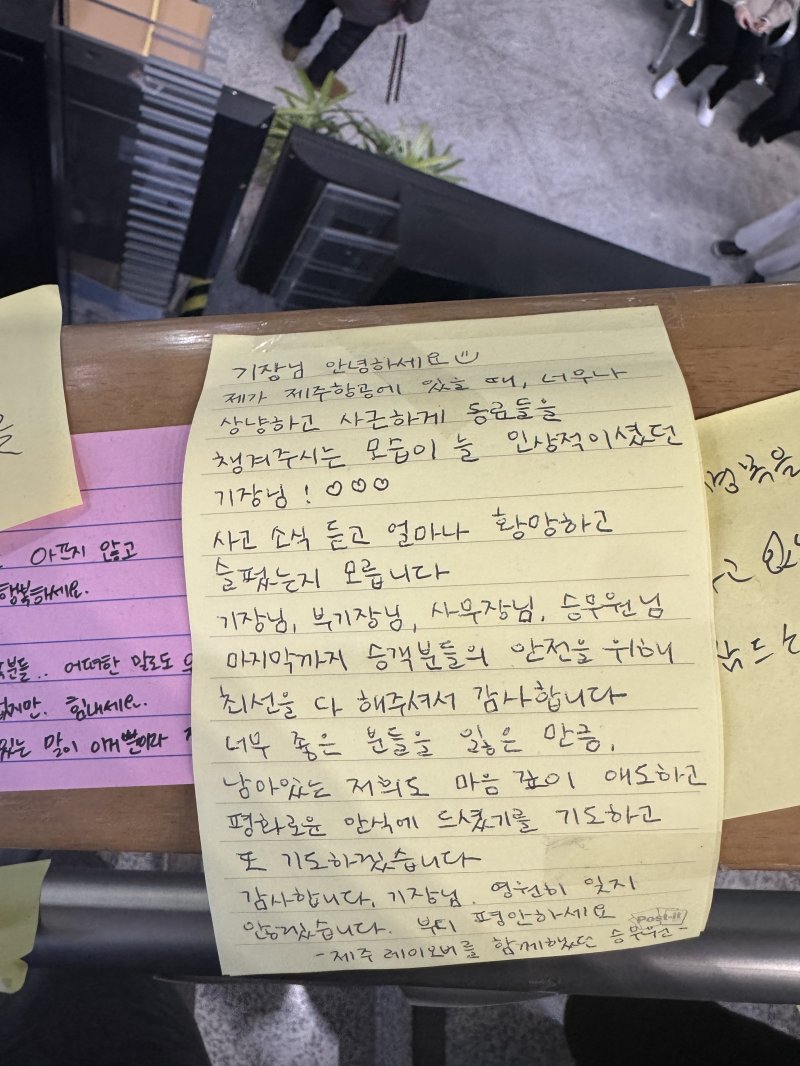 기장님 안녕하세요
제가 제주항공에 있을 때, 너무나
상냥하고 사근하게 동료들을
챙겨주시는 모습이 늘 인상적이셨던
기장님! ♡♡♡
사고 소식 듣고 얼마나 황망하고
슬펐는지 모릅니다
기장님, 부기장님, 사무장님, 승무원님
마지막까지 승객분들의 안전을 위해
최선을 다 해주셔서 감사합니다
너무 좋은 분들을 잃은 만큼,
남아있는 저희도 마음 깊이 애도하고
평화로운 안식에 드셨기를 기도하고
또 기도하겠습니다
감사합니다, 기장님. 영원히 잊지
않겠습니다. 부디 평안하세요
Post-it
-제주 레이오버를 함께했던 승무원-
을
아프지 않고
행복하세요.
분들.. 어떠한 말로도
지만. 힘내세요.
있는 말이 이거뿐이라
명복을
고